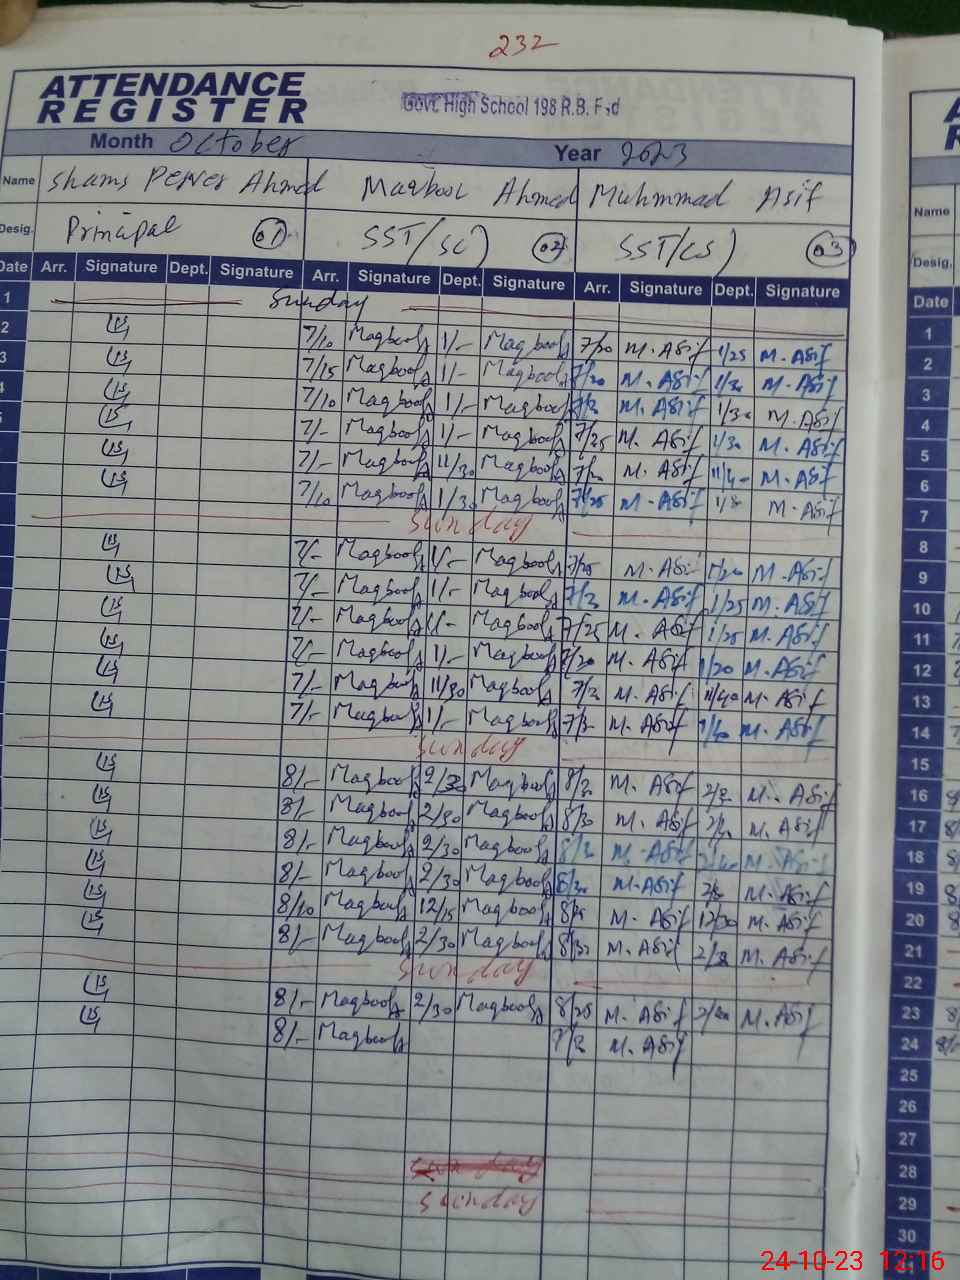 232
ATTENDANCE
REGISTER
Govt. High School 198 R.B. F
Month October Year 2023
Name Shams Perves Ahmed Maqbool Ahmed Muhmmad Asif
Desig. Principal 01 SST/(SC) 02 SST/(CS) 03
Date Arr. Signature Dept. Signature Arr. Signature Dept. Signature Arr. Signature Dept. Signature
1 Sunday
2 7/10 Maqbool 1/- Maqbool 7/20 M. Asif 1/25 M. Asif
3 7/15 Maqbool 1/- Maqbool 7/20 M. Asif 1/30 M. Asif
4 7/10 Maqbool 1/- Maqbool M. Asif 1/30 M. Asif
5 7/- Maqbool 1/- Maqbool 7/25 M. Asif 1/30 M. Asif
7/- Maqbool 11/30 Maqbool M. Asif 11/40 M. Asif
7/10 Maqbool 1/30 Maqbool 7/25 M. Asif M. Asif
Sunday
7/- Maqbool 1/- Maqbool 7/25 M. Asif M. Asif
7/- Maqbool 1/- Maqbool M. Asif 1/25 M. Asif
7/- Maqbool 1/- Maqbool 7/25 M. Asif 1/25 M. Asif
7/- Maqbool 1/- Maqbool 7/20 M. Asif 1/20 M. Asif
7/- Maqbool 11/30 Maqbool M. Asif 11/40 M. Asif
7/- Maqbool 1/- Maqbool M. Asif M. Asif
Sunday
8/- Maqbool 2/30 Maqbool M. Asif M. Asif
8/- Maqbool 2/30 Maqbool 8/30 M. Asif M. Asif
8/- Maqbool 2/30 Maqbool M. Asif M. Asif
8/- Maqbool 2/30 Maqbool 8/30 M. Asif M. Asif
8/10 Maqbool 12/15 Maqbool M. Asif 12/30 M. Asif
8/- Maqbool 2/30 Maqbool M. Asif M. Asif
Sunday
8/- Maqbool 2/30 Maqbool 8/25 M. Asif M. Asif
8/- Maqbool M. Asif
Sunday
Sunday
Name
Desig.
Date
1
2
3
4
5
6
7
8
9
10
11
12
13
14
15
16
17
18
19
20
21
22
23
24
25
26
27
28
29
30
31
24-10-23 12:16